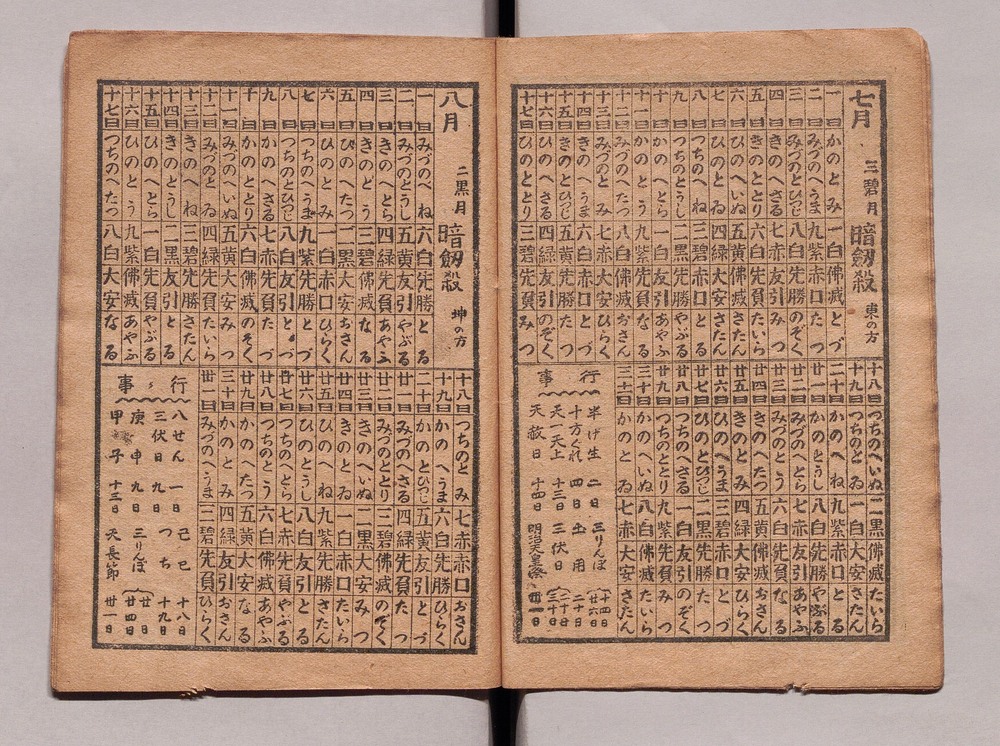 七月 三碧月 暗劔殺 東の方
一日 かのと み 一白佛滅 とづ
二日 みづのへうま 九紫赤口 たつ
三日 みづのとひつじ 八白先勝 のぞく
四日 きのへさる 七赤友引 みつ
五日 きのととり 六白先負 たいら
六日 ひのへいぬ 五黄佛滅 さたん
七日 ひのと ゐ 四緑大安 とる
八日 つちのへね 三碧赤口 とる
九日 つちのとうし 二黒先勝 やぶる
十日 かのへとら 一白友引 あやふ
十一日 かのと う 九紫先負 なる
十二日 みづのへたつ 八白佛滅 おさん
十三日 みづのと み 七赤大安 ひらく
十四日 きのへうま 六白赤口 とづ
十五日 きのとひつじ 五黄先勝 たつ
十六日 ひのへさる 四緑友引 のぞく
十七日 ひのととり 三碧先負 みつ
十八日 つちのへいぬ 二黒佛滅 たいら
十九日 つちのと ゐ 一白大安 さたん
二十日 かのへ ね 九紫赤口 とる
廿一日 かのとうし 八白先勝 やぶる
廿二日 みづのへとら 七赤友引 あやふ
廿三日 みづのと う 六白先負 なる
廿四日 きのへたつ 五黄佛滅 おさん
廿五日 きのと み 四緑大安 ひらく
廿六日 ひのへうま 三碧赤口 とづ
廿七日 ひのとひつじ 二黒先勝 たつ
廿八日 つちのへさる 一白友引 のぞく
廿九日 つちのととり 九紫先負 みつ
三十日 かのへいぬ 八白佛滅 たいら
三十一日 かのと ゐ 七赤大安 さたん
行事
半げ生 二日 三りんぼ 十四日 廿六日
十方ぐれ 四日 土用 二十日
天一天上 十三日 三伏日 二十日 三十日
天赦日 十四日 明治天皇祭 卅一日
八月 二黒月 暗劔殺 坤の方
一日 みづのへ ね 六白先勝 とる
二日 みづのとうし 五黄友引 やぶる
三日 きのへとら 四緑先負 あやふ
四日 きのと う 三碧佛滅 なる
五日 ひのへたつ 二黒大安 おさん
六日 ひのと み 一白赤口 ひらく
七日 つちのへうま 九紫先勝 とづ
八日 つちのとひつじ 八白友引 とづ
九日 かのへさる 七赤先負 たつ
十日 かのととり 六白佛滅 のぞく
十一日 みづのへいぬ 五黄大安 みつ
十二日 みづのと ゐ 四緑赤口 たいら
十三日 きのへ ね 三碧先勝 さたん
十四日 きのとうし 二黒友引 とる
十五日 ひのへとら 一白先負 やぶる
十六日 ひのと う 九紫佛滅 あやふ
十七日 つちのへたつ 八白大安 なる
十八日 つちのと み 七赤赤口 おさん
十九日 かのへうま 六白先勝 ひらく
二十日 かのとひつじ 五黄友引 とづ
廿一日 みづのへさる 四緑先負 たつ
廿二日 みづのととり 三碧佛滅 のぞく
廿三日 きのへいぬ 二黒大安 みつ
廿四日 きのと ゐ 一白赤口 たいら
廿五日 ひのへ ね 九紫先勝 さたん
廿六日 ひのとうし 八白友引 とる
廿七日 つちのへとら 七赤先負 やぶる
廿八日 つちのと う 六白佛滅 あやふ
廿九日 かのへたつ 五黄大安 なる
三十日 かのと み 四緑友引 おさん
三十一日 みづのへうま 三碧先負 ひらく
行事
八せん 一日 己巳 十八日
三伏日 九日 つち 十九日
庚申 九日 三りんぼ 廿一日 廿四日
甲子 十三日 天長節 卅一日